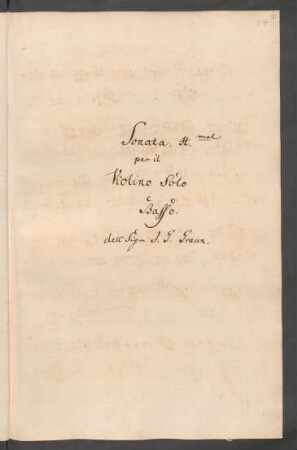 Sonata. H. mol
per il
Violino Solo
e
Basso.
dell Sigr. J. G. Graun.